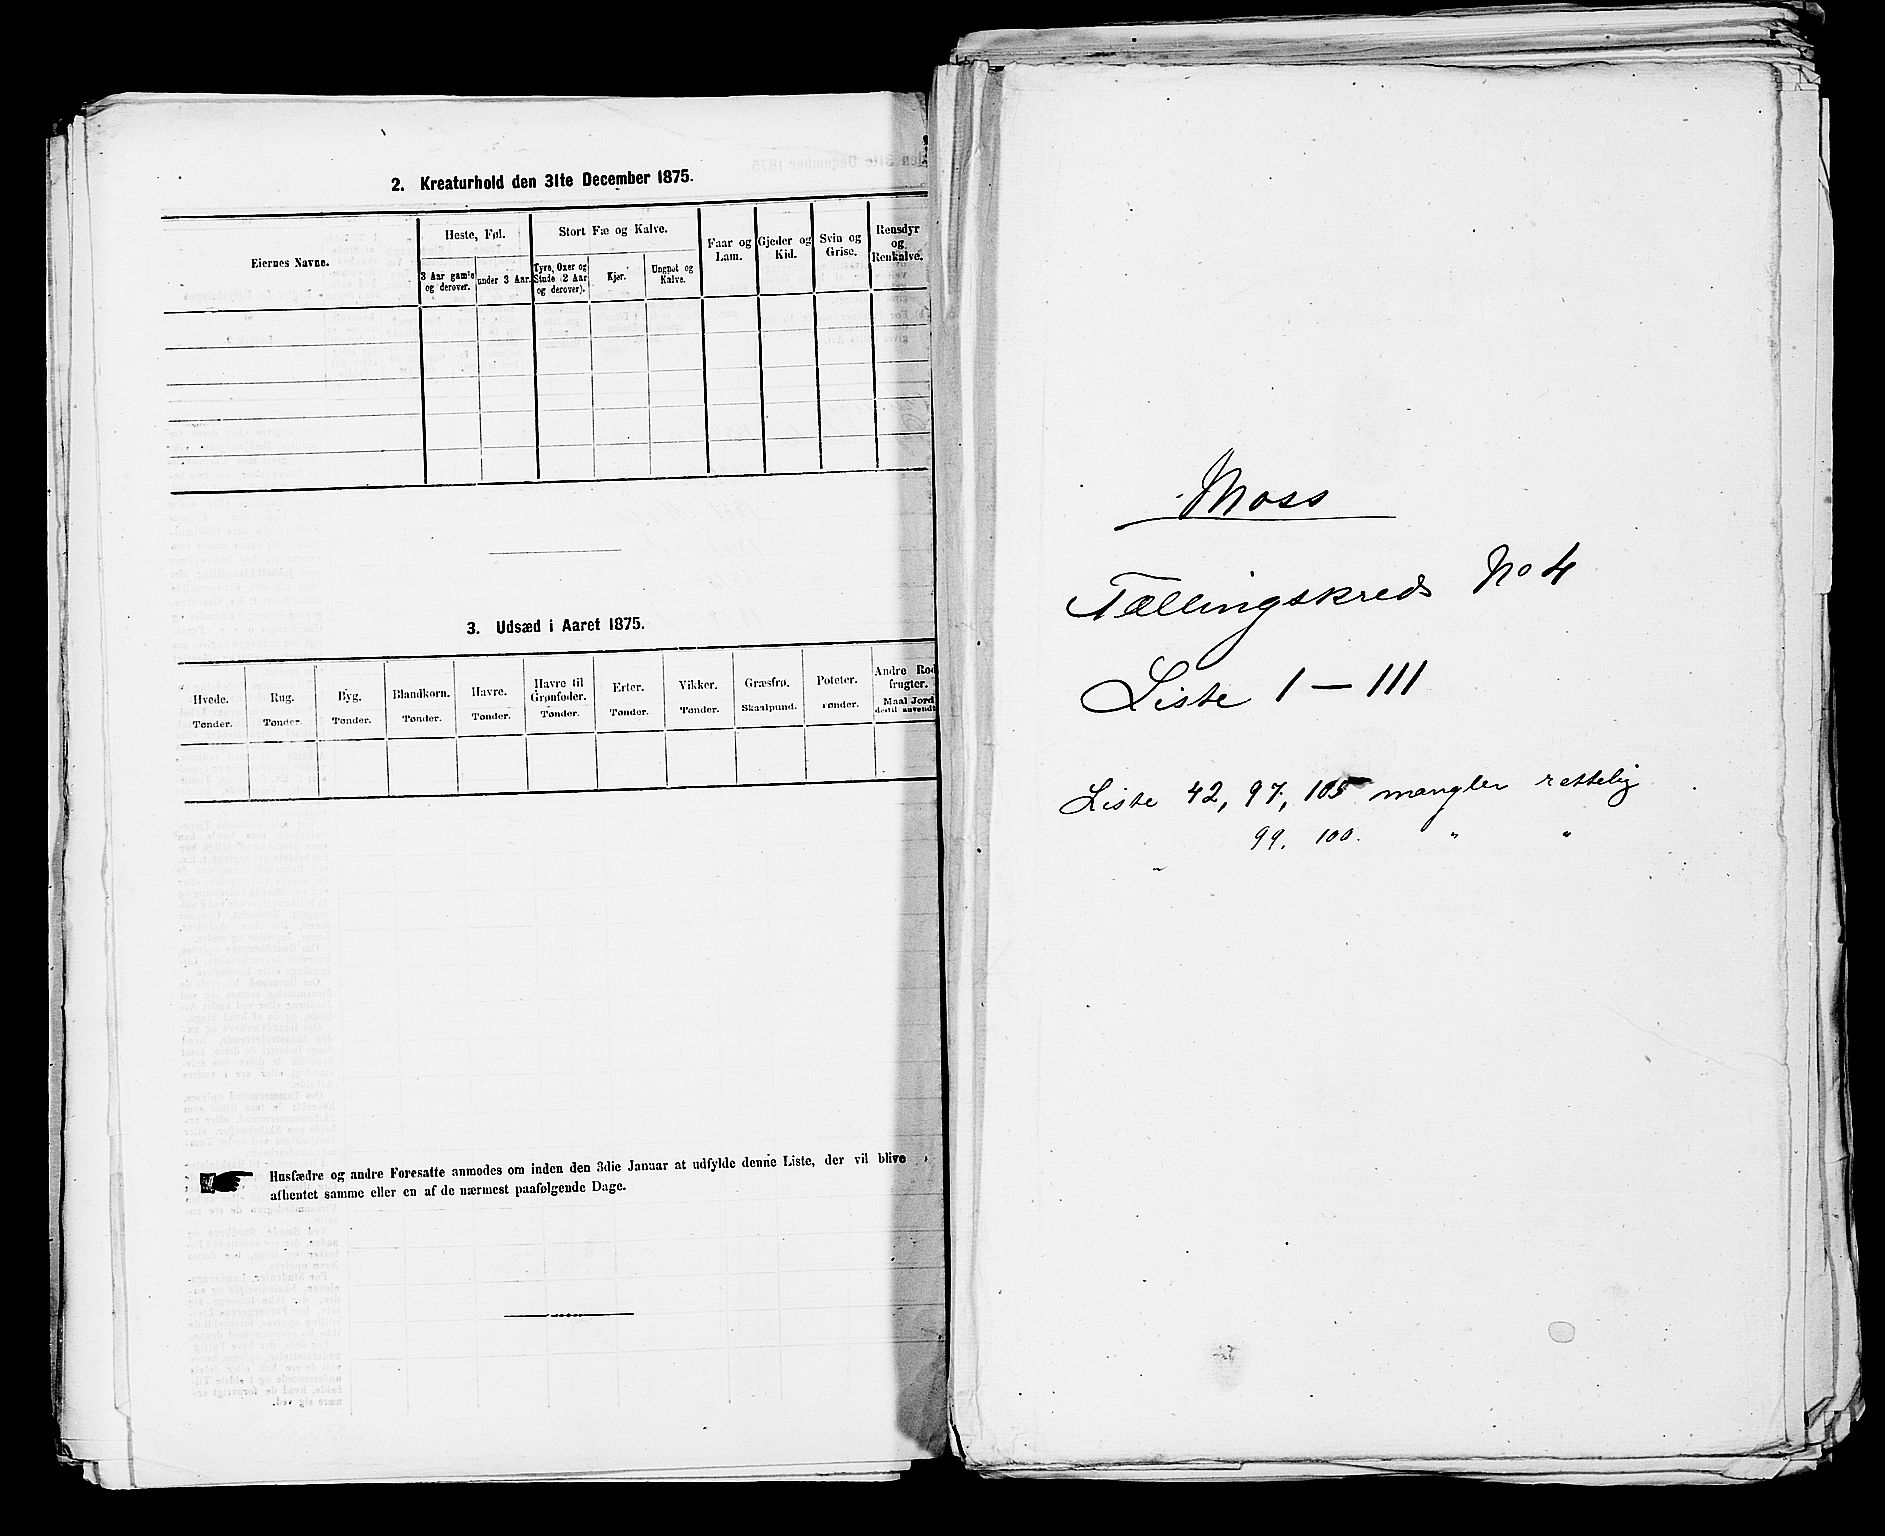 2. Kreaturhold den 31te December 1875.
Eiernes Navne.
Heste, Føl.
3 Aar gamle og derover.
under 3 Aar.
Stort Fæ og Kalve.
Tyre, Oxer og Stude (2 Aar og derover).
Kjør.
Ungnøt og Kalve.
Faar og Lam.
Gjeder og Kid.
Svin og Grise.
Rensdyr og Renkalve.
3. Udsæd i Aaret 1875.
Hvede. Tønder.
Rug. Tønder.
Byg. Tønder.
Blandkorn. Tønder.
Havre. Tønder.
Havre til Grønfoder. Tønder.
Erter. Tønder.
Vikker. Tønder.
Græsfrø. Skaalpund.
Poteter. Tønder.
Andre Rodfrugter. Maal Jord dertil anvendt
Husfædre og andre Foresatte anmodes om inden den 3die Januar at udfylde denne Liste, der vil blive
afhentet samme eller en af de nærmest paafølgende Dage.
Moss
Tællingskreds No 4
Liste 1 — 111
Liste 42, 97, 105 mangler rettelig
" 99. 100. " "